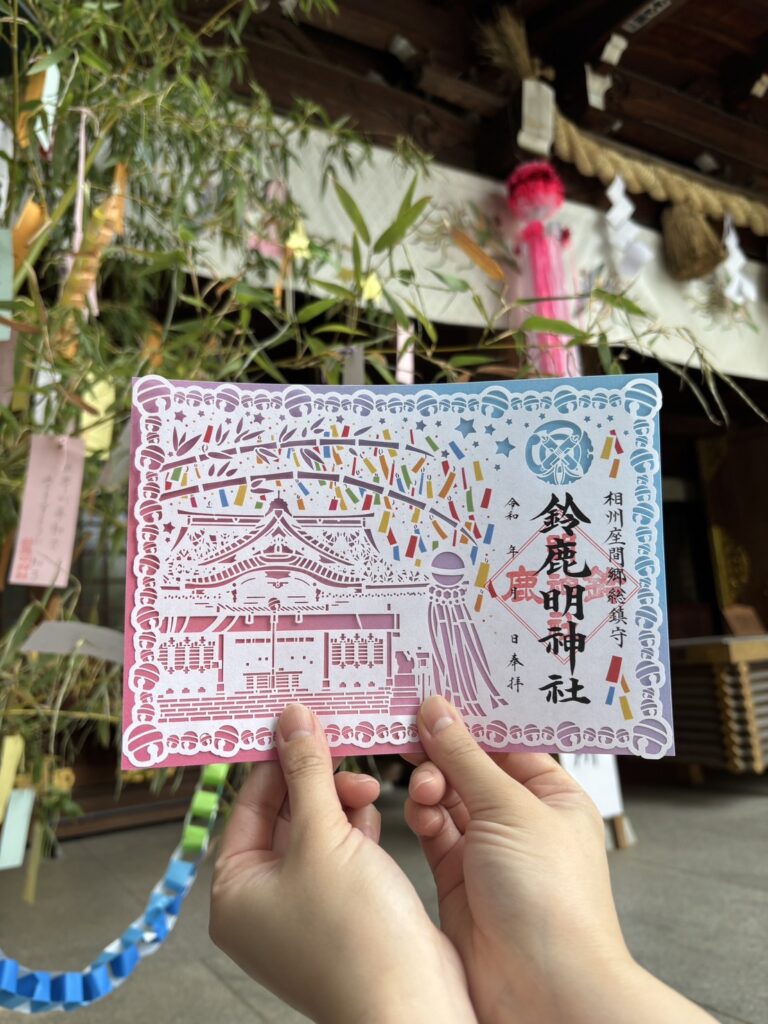 相州座間郷総鎮守
鈴鹿明神社
令和 年 月 日奉拝
鈴鹿